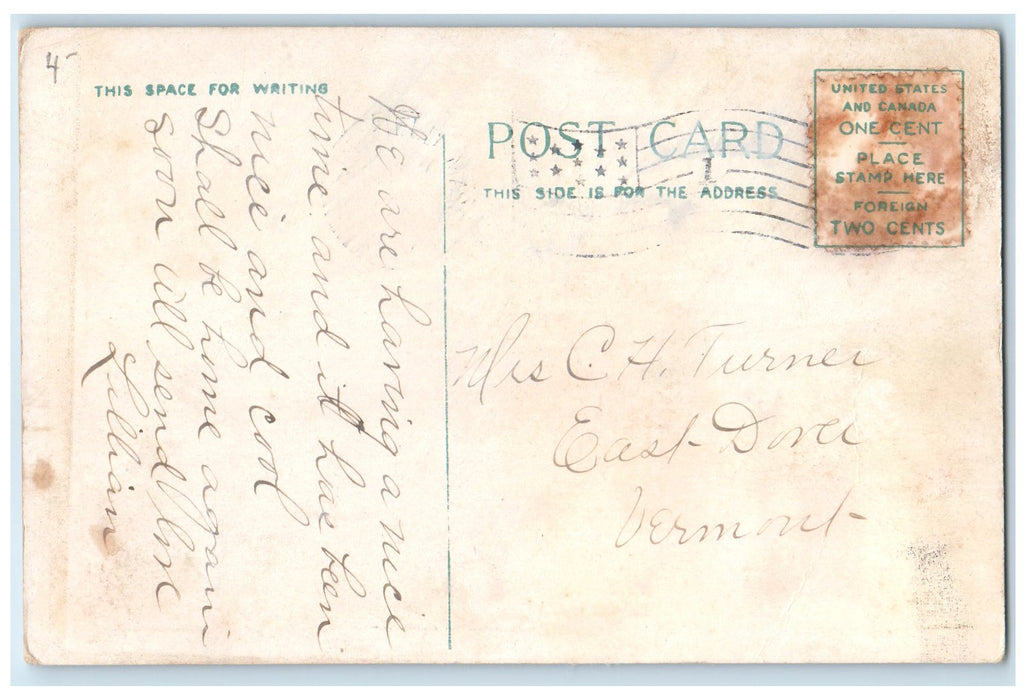 45
THIS SPACE FOR WRITING
We are having a nice
time and it has been
nice and cool
Shall be home again
soon will send line
Lillian
POST CARD
1
THIS SIDE IS FOR THE ADDRESS
UNITED STATES
AND CANADA
ONE CENT
PLACE
STAMP HERE
FOREIGN
TWO CENTS
Mrs C. H. Turner
East Dover
Vermont